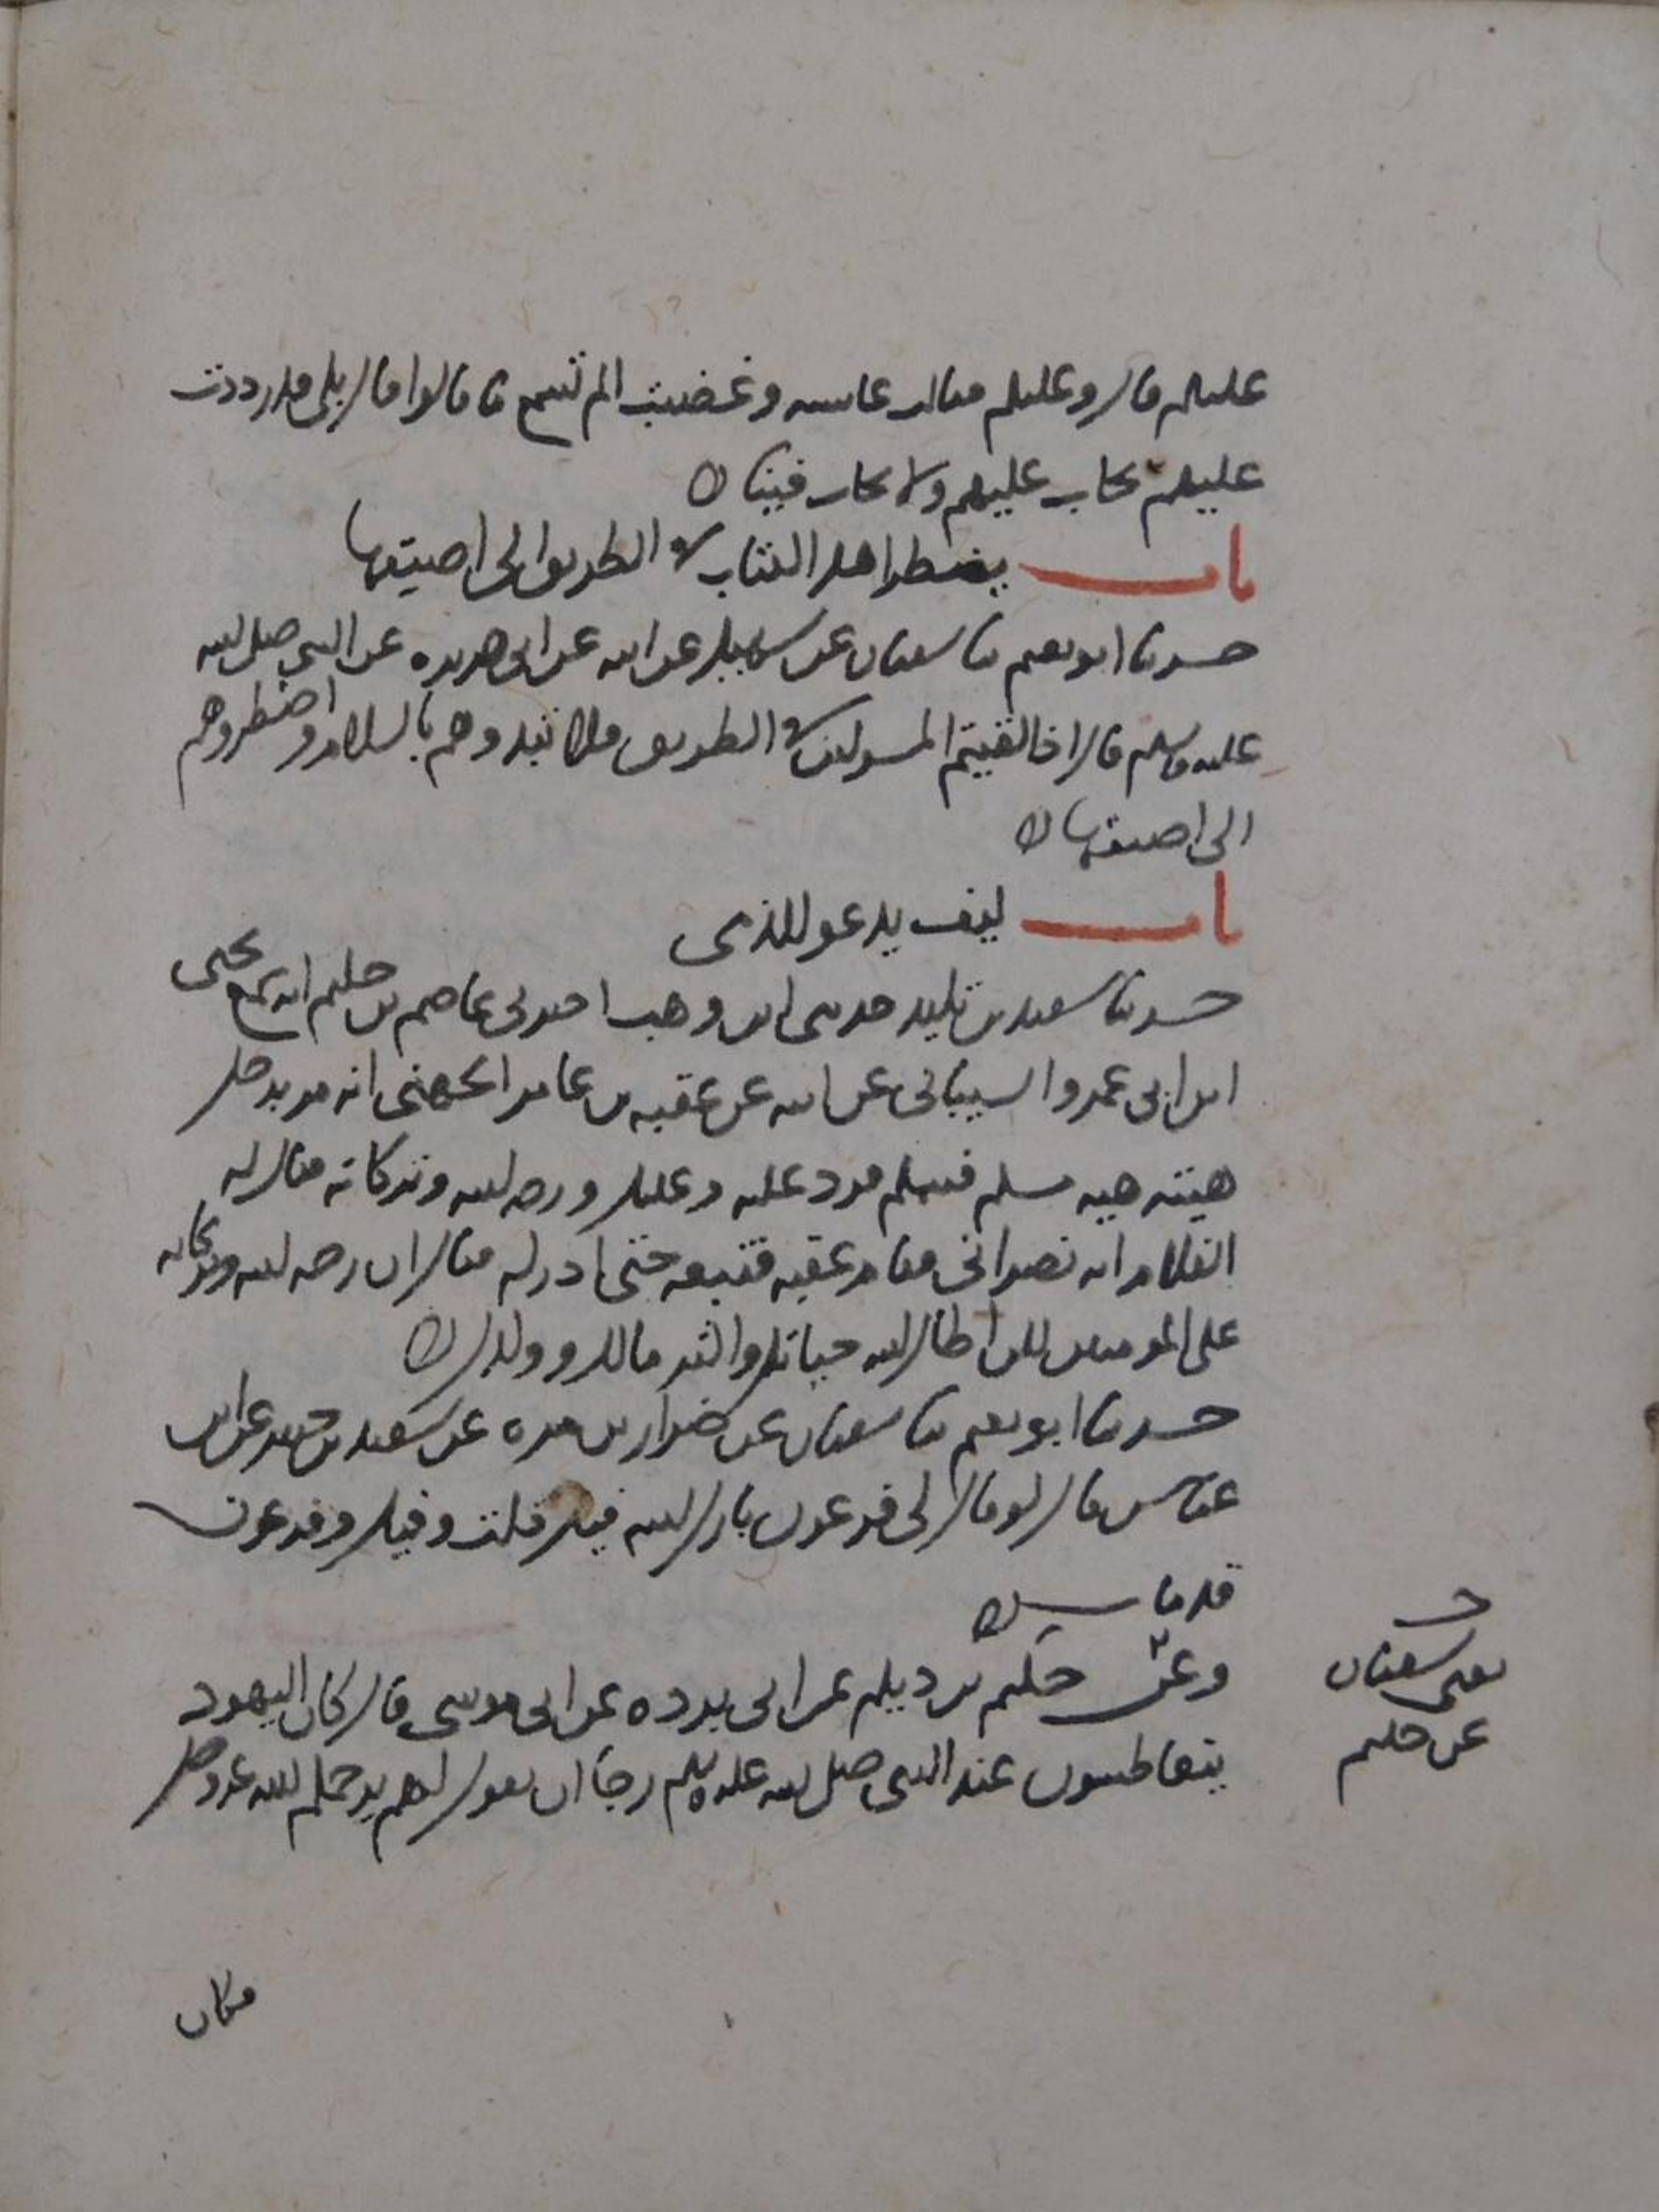 عليكم قال وعليكم فقالت عائشة وغضبت الم تسمع ما قالوا قال بلى قد رددت
عليهم نجاب عليهم ولا يجاب فينا
باب يضطر اهل الكتاب في الطريق الى اضيقها
حدثنا ابو نعيم ثنا سفيان عن سهيل عن ابيه عن ابي هريرة عن النبي صلى الله
عليه وسلم قال اذا لقيتم المشركين في الطريق فلا تبدوهم بالسلام واضطروهم
الى اضيقها
باب كيف يدعو للذمي
حدثنا سعيد بن تليد حدثني ابن وهب اخبرني عاصم بن حكيم انه سمع يحيى
ابن ابي عمرو السيباني عن ابيه عن عقبة بن عامر الجهني انه مر برجل
هيئته هيه مسلم فسلم فرد عليه وعليك ورحمه الله وبركاته فقال له
الغلام انه نصراني فقام عقبة فتبعه حتى ادركه فقال ان رحمه الله وبركاته
على المومنين لكن اطال الله حياتك واكثر مالك وولدك
حدثنا ابو نعيم ثنا سفيان عن ضرار بن مرة عن سعيد بن جبير عن ابن
عباس قال لو قال لي فرعون بارك الله فيك قلت وفيك وفرعون
قد مات
وعن حكيم بن ديلم عن ابي بردة عن ابي موسى قال كان اليهود
يتعاطسون عند النبي صلى الله عليه وسلم رجا ان يقول لهم يرحمكم الله عز وجل
حـ
يعني سفيان
عن حكيم
فكان